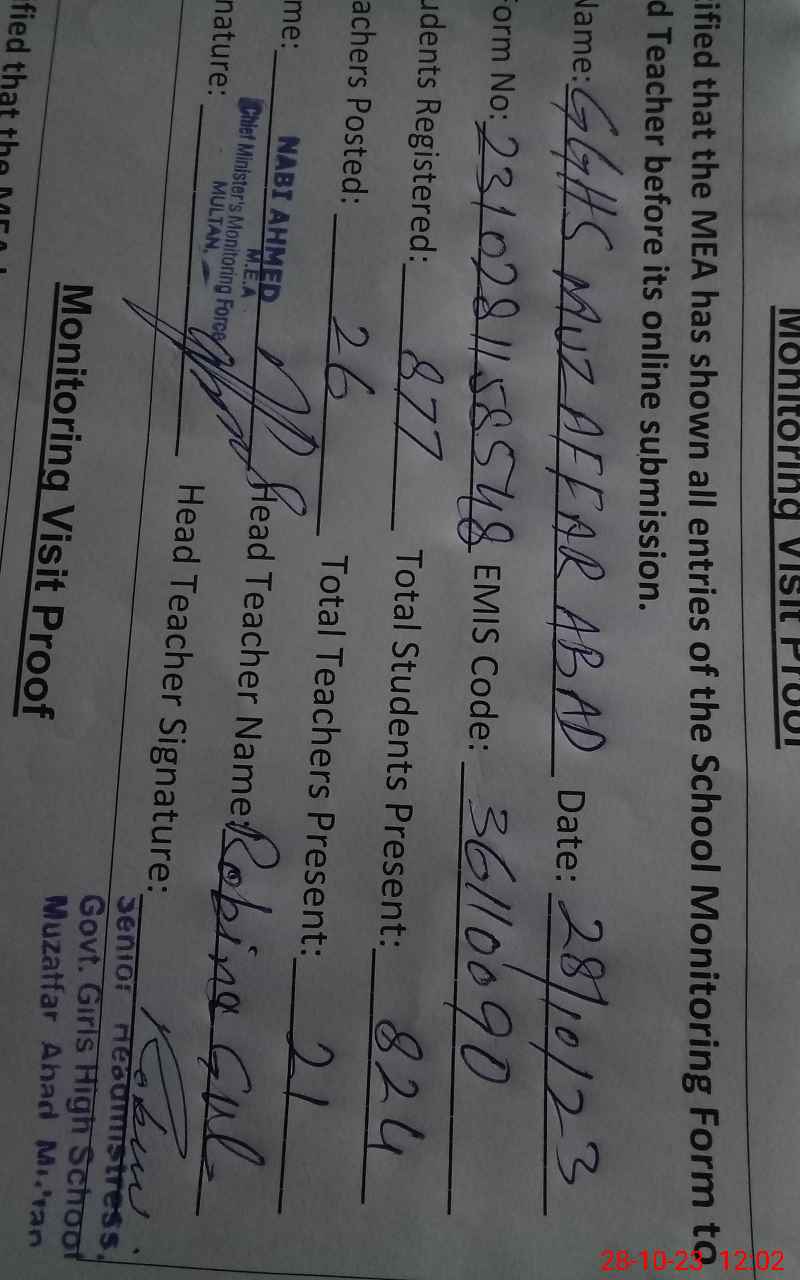 Monitoring Visit Proof
ified that the MEA has shown all entries of the School Monitoring Form to
d Teacher before its online submission.
Name: GGHS MUZAFFAR ABAD Date: 28/10/23
orm No: 2310281158548 EMIS Code: 36110090
udents Registered: 877 Total Students Present: 824
achers Posted: 26 Total Teachers Present: 21
me: NABI AHMED Head Teacher Name: Robina Gul
M.E.A
Chief Minister's Monitoring Force
MULTAN.
nature: Head Teacher Signature:
Senior Headmistress.
Govt. Girls High School
Muzaffar Abad Multan
Monitoring Visit Proof
ified that the MEA
28-10-23 12:02